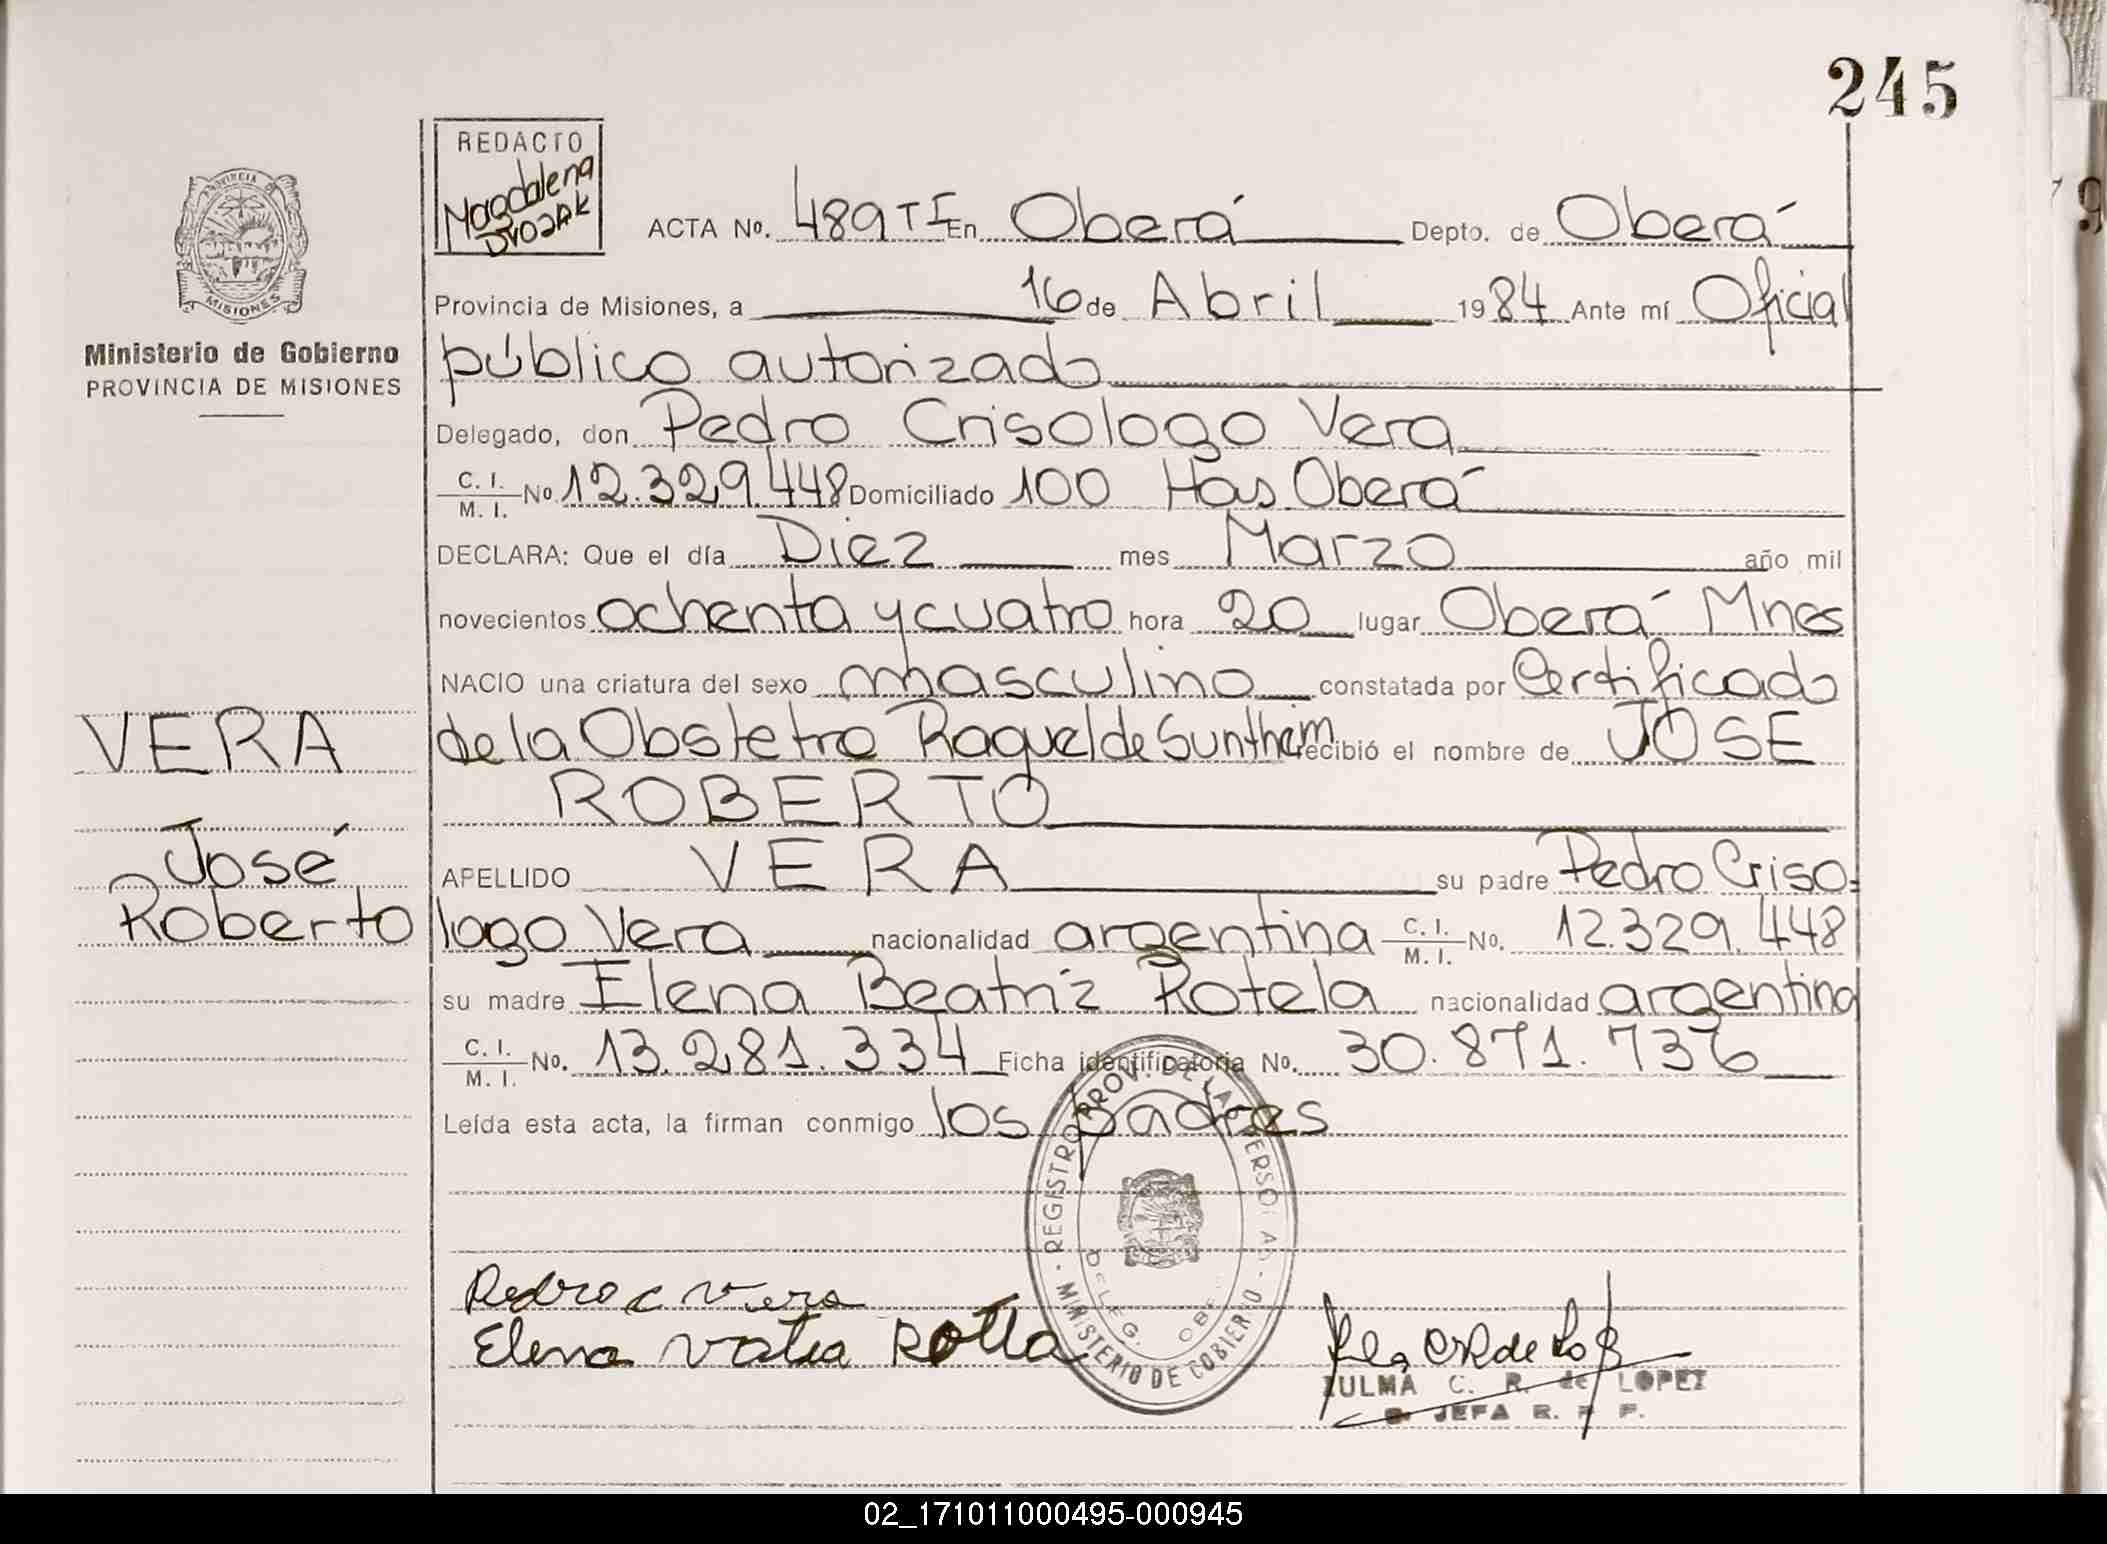 245
REDACTO
Magdalena
Dvozak
ACTA No. 489 T I En Oberá Depto. de Oberá
Provincia de Misiones, a 16 de Abril 1984 Ante mí Oficial
público autorizado
Delegado, don Pedro Crisologo Vera
C. I.
M. I. No. 12.329.448 Domiciliado 100 Has. Oberá
DECLARA: Que el día Diez mes Marzo año mil
novecientos ochenta y cuatro hora 20 lugar Oberá Mnes
NACIO una criatura del sexo masculino constatada por Certificado
de la Obstetra Raquel de Suntheim recibió el nombre de JOSE
ROBERTO
APELLIDO VERA su padre Pedro Criso=
logo Vera nacionalidad argentina C. I.
M. I. No. 12.329.448
su madre Elena Beatriz Rotela nacionalidad argentina
C. I.
M. I. No. 13.281.334 Ficha identificatoria No. 30.871.736
Leída esta acta, la firman conmigo los padres
PROVINCIA DE
MISIONES
Ministerio de Gobierno
PROVINCIA DE MISIONES
VERA
José
Roberto
REGISTRO PROV. DE LAS PERSONAS
MINISTERIO DE GOBIERNO
DELEG. OBE
Pedro C Vera
Elena
ZULMA C. R. de LOPEZ
JEFA R. P. P.
02_171011000495-000945